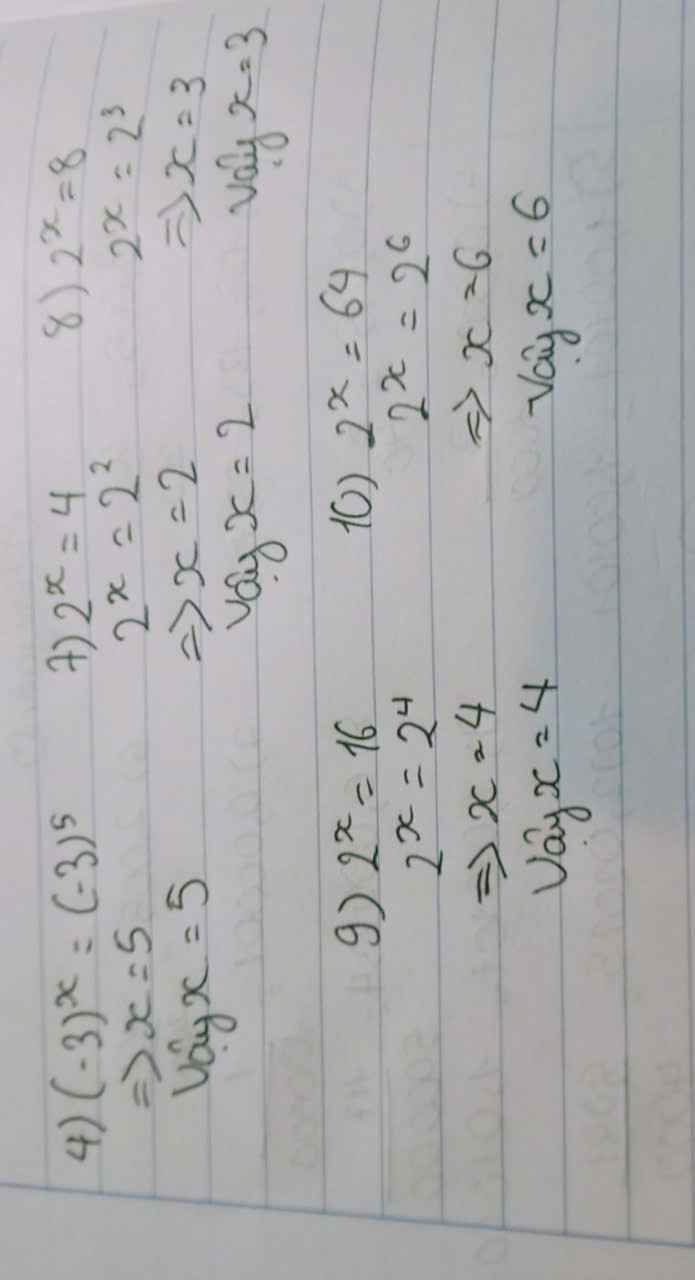 4) (-3)ˣ = (-3)⁵
=> x = 5
Vậy x = 5
7) 2ˣ = 4
2ˣ = 2²
=> x = 2
Vậy x = 2
8) 2ˣ = 8
2ˣ = 2³
=> x = 3
Vậy x = 3
9) 2ˣ = 16
2ˣ = 2⁴
=> x = 4
Vậy x = 4
10) 2ˣ = 64
2ˣ = 2⁶
=> x = 6
Vậy x = 6